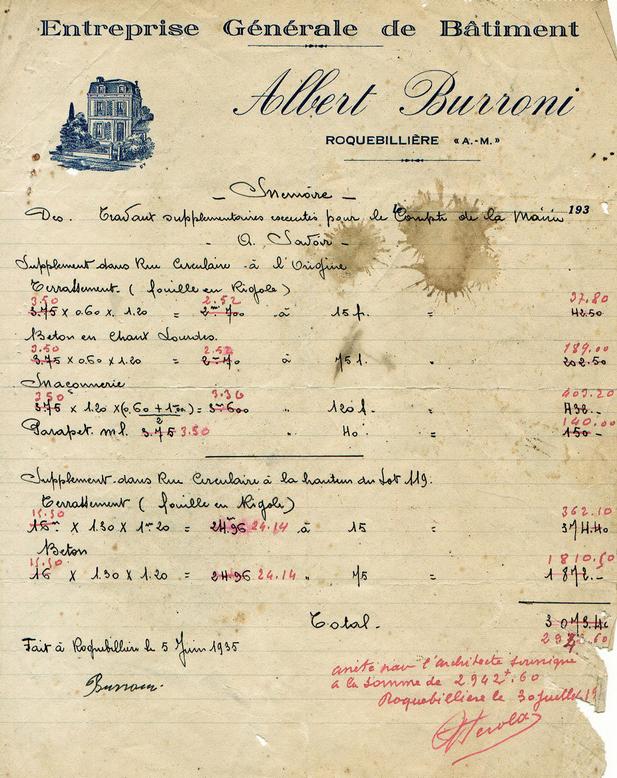 Entreprise Générale de Bâtiment
Albert Burroni
ROQUEBILLIÈRE «A.-M.»
- Mémoire -
le 193
Des Travaux supplementaires executés pour le Compte de la Mairie
- A Savoir -
Supplement dans Rue Circulaire à l'Origine
Terrassement (fouille en Rigole)
3.50 2.52 37.80
3.75 × 0.60 × 1.20 = 2m 700 à 15 f. " 42.50
Beton en Chaux Lourdes.
3.50 2.52 189.00
3.75 × 0.60 × 1.20 = 2m 70 à 75 f. " 202.50
Maçonnerie
3.50 3.36 403.20
3.75 × 1.20 × (0.60 + 1.00) = 3m 600 " 120 f. = 432.-
2
140.00
Parapet ml. 3.75 3.50 " 40 = 150-
Supplement dans Rue Circulaire à la hauteur du Lot 119.
Terrassement (fouille en Rigole)
15.50 362.10
16m × 1.30 × 1m 20 = 24.96 24.14 à 15 = 374.40
Beton
15.50 1810.50
16 × 1.30 × 1.20 = 24.96 24.14 " 75 = 1872.-
Total. 3073.40
2942.60
Fait à Roquebillière le 5 Juin 1935
Burroni
arrêté par l'architecte soussigné
à la somme de 2942f.60
Roquebillière le 30 juillet 19